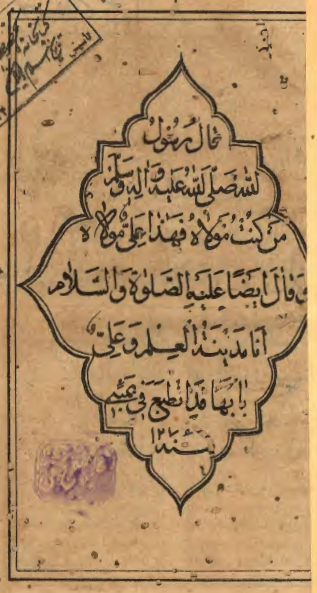 قال رسول
الله صلى الله عليه وآله وسلم
من كنت مولاه فهذا علي مولاه
وقال ايضا عليه الصلوة والسلام
انا مدينة العلم وعلي
بابها قد انطبع في
سنة